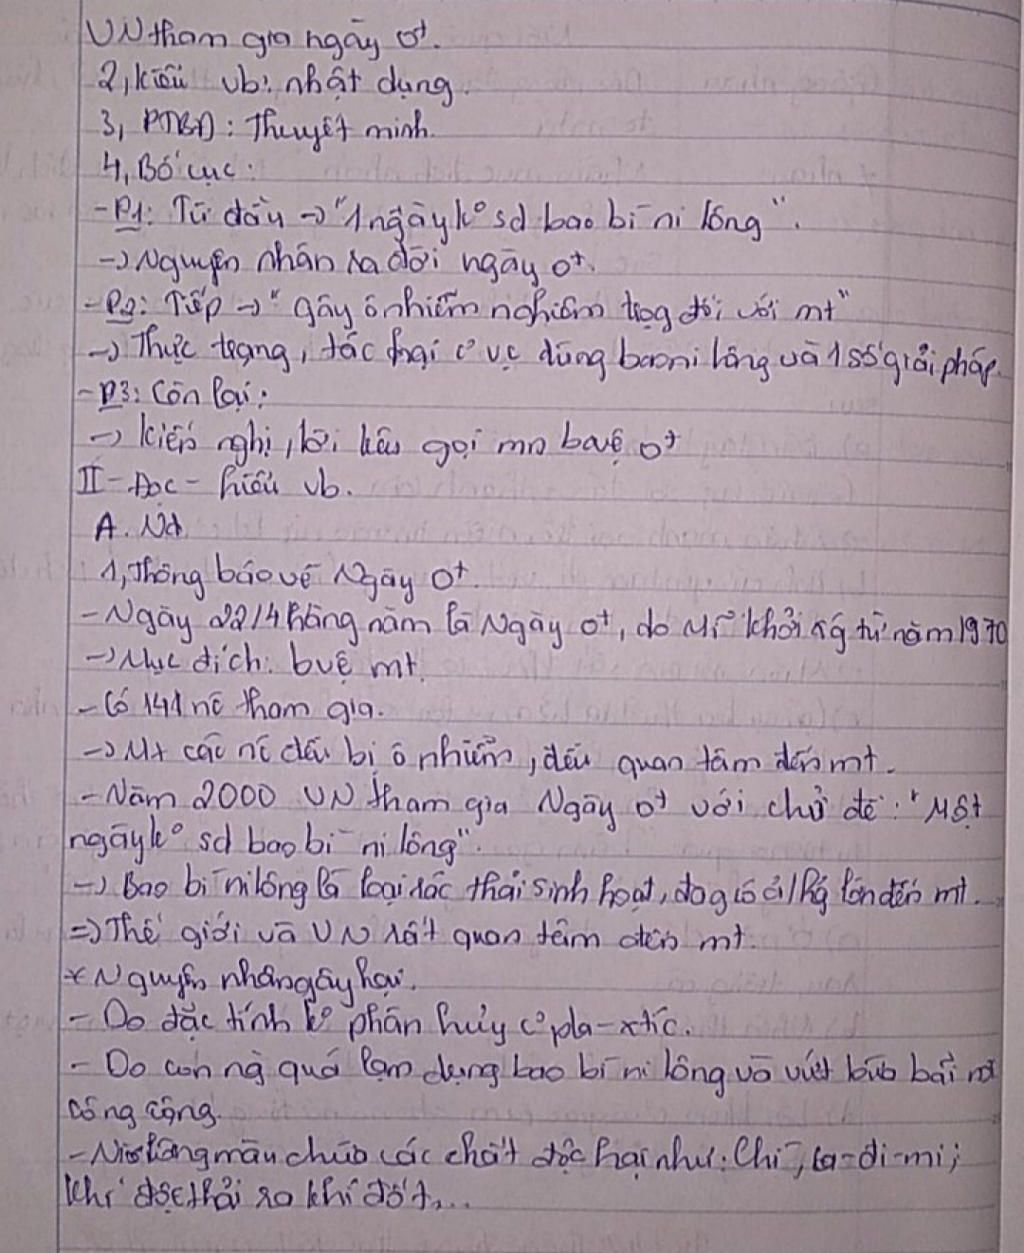 VN tham gia ngày 0+.
2, kiểu vb: nhật dụng.
3, PTBĐ: Thuyết minh.
4, Bố cục:
- P1: Từ đầu → "1 ngày k° sd bao bì ni lông".
→ Nguyên nhân ra đời ngày 0+.
- P2: Tiếp → "gây ô nhiễm nghiêm trọg đối với mt"
→ Thực trạng, tác hại c° vc dùng bao ni lông và 1 số giải pháp.
- P3: Còn lại:
→ kiến nghị, lời kêu gọi mn bvệ 0+
II - Đọc - hiểu vb.
A. Nd
1, Thông báo về Ngày 0+.
- Ngày 22/4 hằng năm là Ngày 0+, do Mĩ khởi xg từ năm 1970
→ Mục đích: bvệ mt.
- Có 141 nc tham gia.
→ Mt các nc đều bị ô nhiễm, đều quan tâm đến mt.
- Năm 2000 VN tham gia Ngày 0+ với chủ đề: "Một
ngày k° sd bao bì ni lông".
→ Bao bì ni lông là loại rác thải sinh hoạt, đag có ả/hg lớn đến mt.
=> Thế giới và VN rất quan tâm đến mt.
* Nguyên nhân gây hại.
- Do đặc tính k° phân hủy c° pla-xtíc.
- Do con ng quá lạm dụng bao bì ni lông và vứt bừa bãi nơi
công cộng.
- Ni lông màu chứa các chất độc hại như: Chì, ca-đi-mi;
khí độc thải ra khi đốt,...